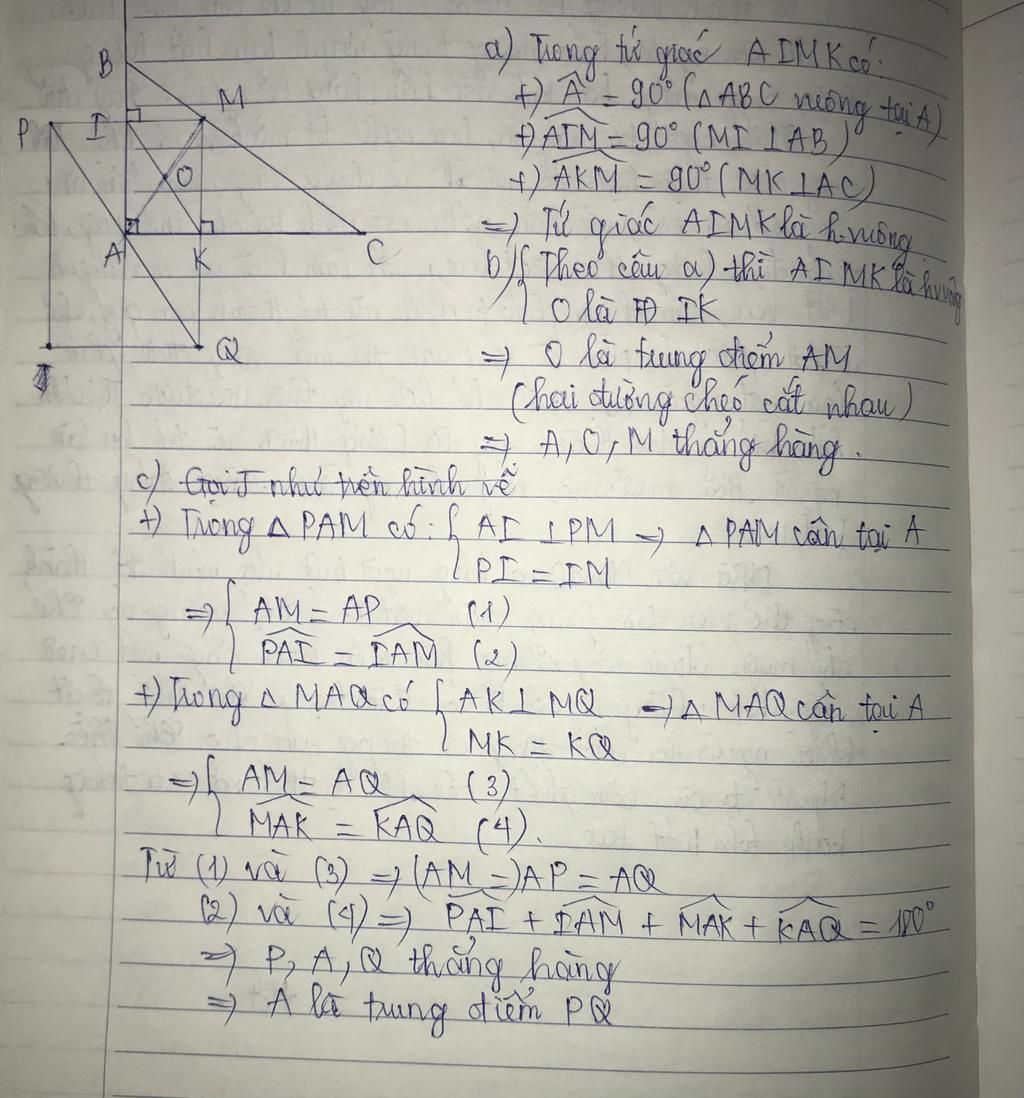 B
P
I
M
O
A
K
C
Q
a) Trong tứ giác AIMK có:
+) Â = 90° (△ABC vuông tại A)
+) AIM = 90° (MI ⊥ AB)
+) AKM = 90° (MK ⊥ AC)
=> Tứ giác AIMK là h.vuông
b) { Theo câu a) thì AIMK là h.vuông
O là TĐ IK
=> O là trung điểm AM
(hai đường chéo cắt nhau)
=> A, O, M thẳng hàng.
c) Gọi J như trên hình vẽ
+) Trong △ PAM có: { AI ⊥ PM => △ PAM cân tại A
PI = IM
=> { AM = AP (1)
PAI = IAM (2)
+) Trong △ MAQ có { AK ⊥ MQ => △ MAQ cân tại A
MK = KQ
=> { AM = AQ (3)
MAK = KAQ (4).
Từ (1) và (3) => (AM =) AP = AQ
(2) và (4) => PAI + IAM + MAK + KAQ = 180°
=> P, A, Q thẳng hàng
=> A là trung điểm PQ